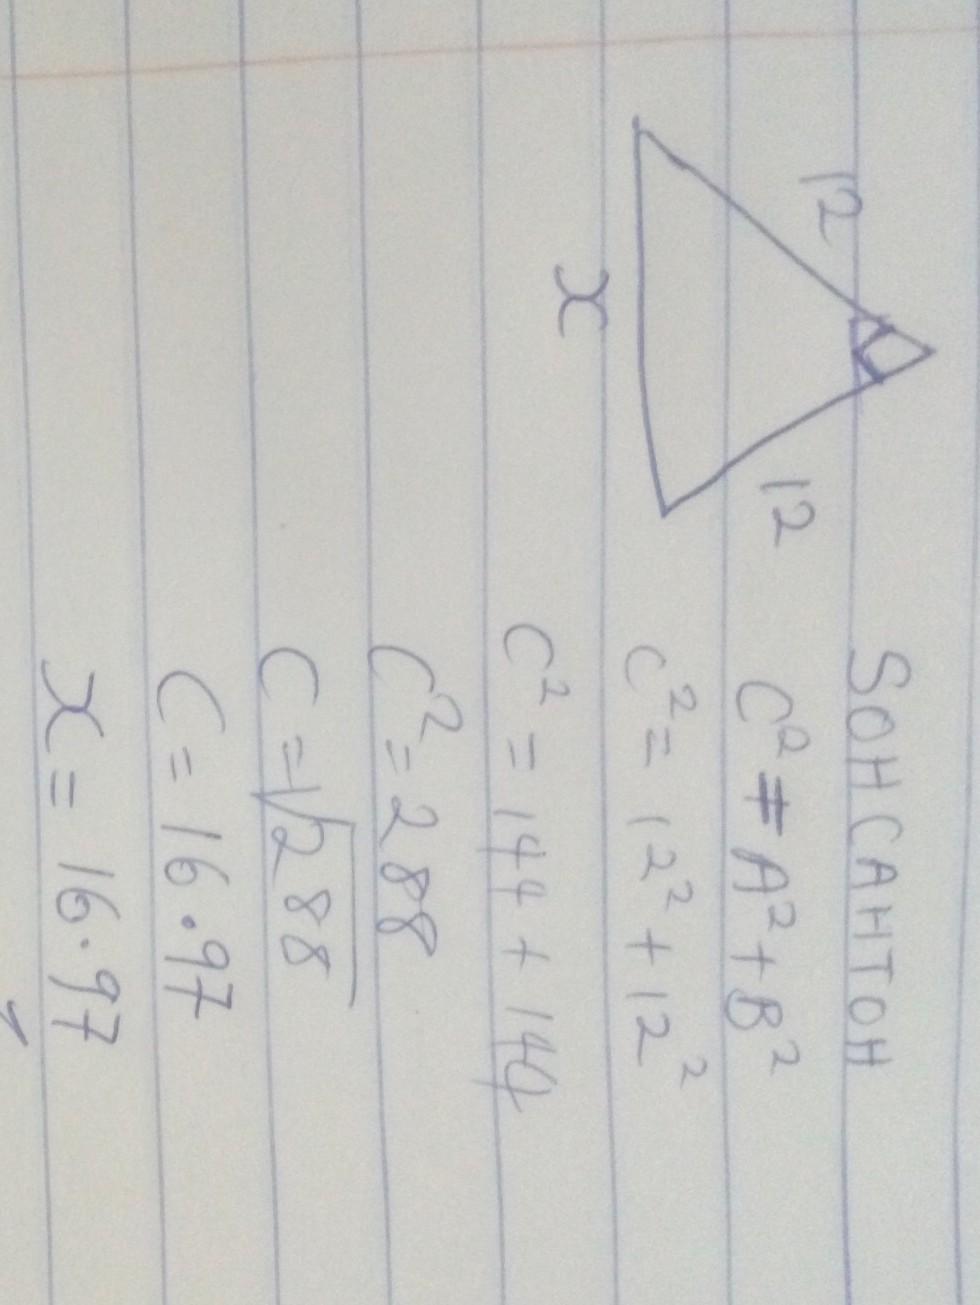 12
12
x
SOHCAHTOH
C² = A² + B²
C² = 12² + 12²
C² = 144 + 144
C² = 288
C = √288
C = 16.97
x = 16.97